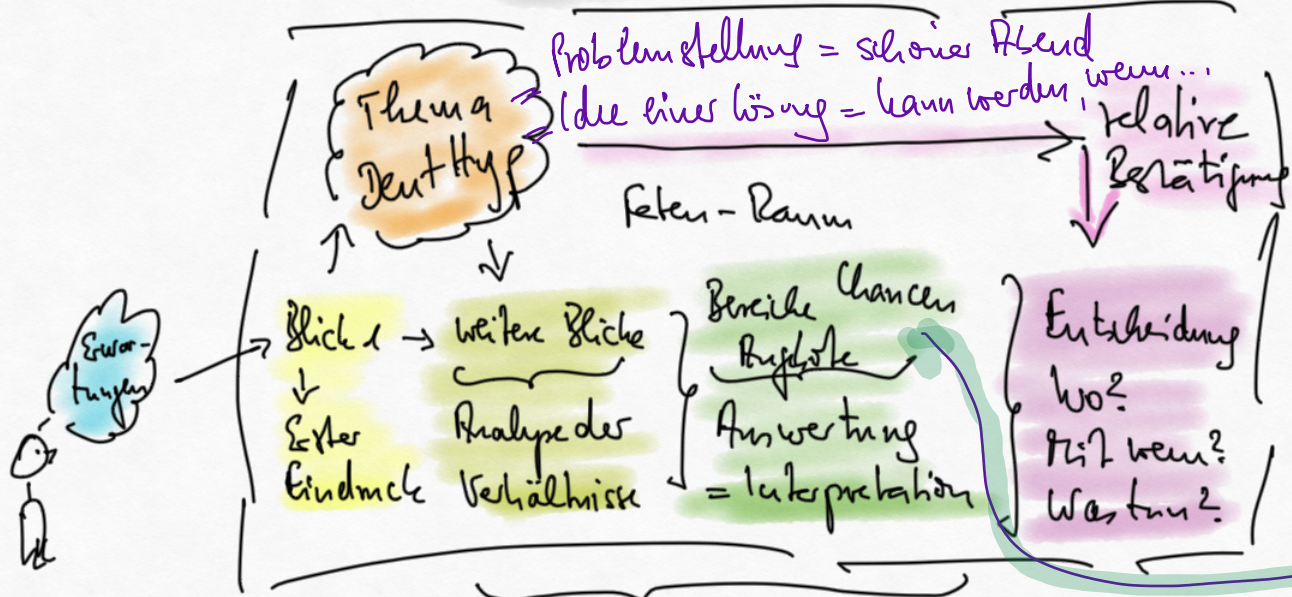 Problemstellung = schöner Abend
Idee einer Lösung = kann werden, wenn...
Thema
DeutHyp
relative
Bestätigung
Feten-Raum
Erwar-
tungen
Blick 1
Erster
Eindruck
weitere Blicke
Analyse der
Verhältnisse
Bereiche Chancen
Angebote
Auswertung
= Interpretation
Entscheidung
Wo?
Mit wem?
Was tun?